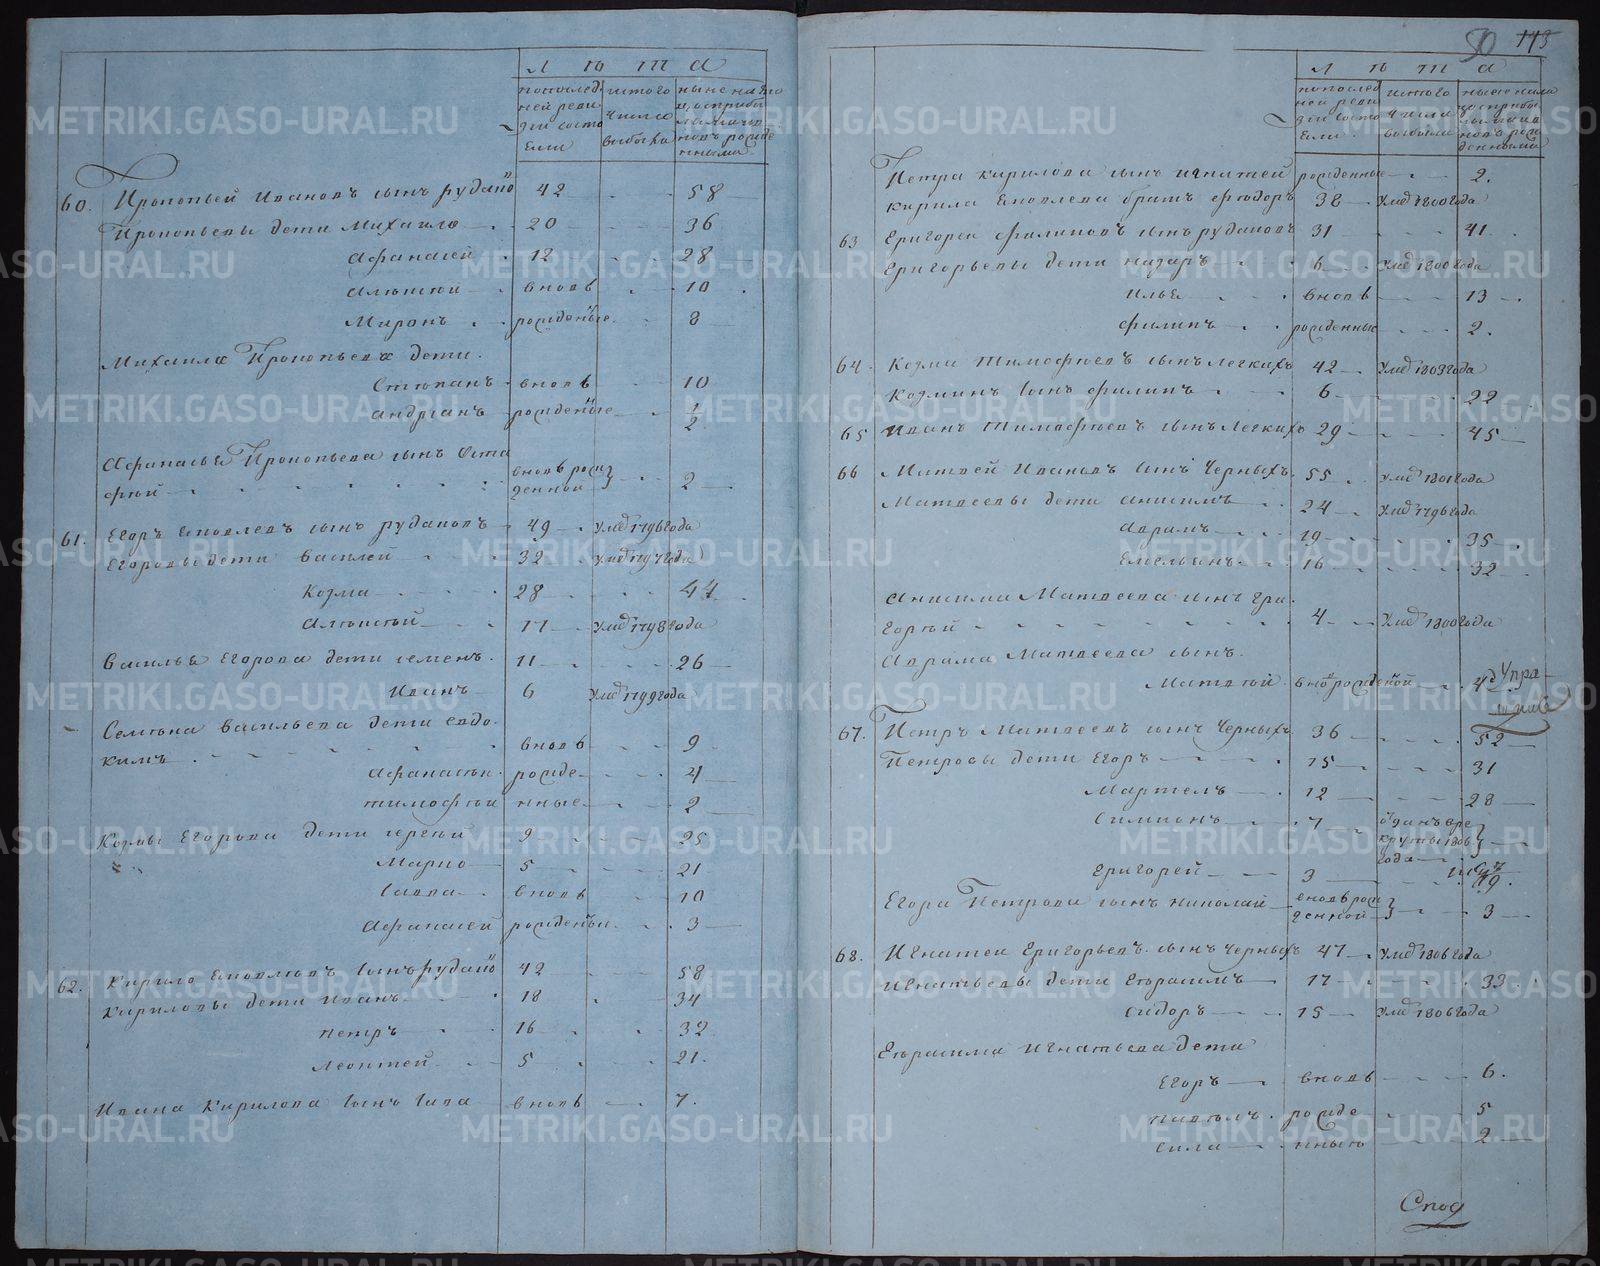 50 115
Л ѣ т а
попослед
ней реви
зіи состо
яли
изтого
числа
выбыло
ныне на ли
цо сприбы
лыми и в
новь рожде
нными
60. Прокопьей Ивановъ сынъ рудано 42 58
Прокопьевы дети Михаило 20 36
Афанасей 12 28
Алѣксѣй вновь 10
Миронъ рожденные 8
Михаила Прокопьева дети.
Стѣпанъ вновь 10
андріянъ рожденные 1/2
Афанасья Прокопьева сынъ Оста
фѣй вновь рож
денной 2
61. Егоръ Яковлевъ сынъ рудановъ 49 умер 1796 года
Егоровы дети Василей 32 умер 1797 года
Козма 28 44
Алѣксѣй 17 умер 1798 года
Василья Егорова дети семенъ 11 26
Иванъ 6 умер 1799 года
Семѣна Васильева дети евдо
кимъ вновь 9
Афанасѣй рожде 4
тимофѣй нные 2
Козмы Егорова дети сергѣй 9 25
Марко 5 21
Савва вновь 10
Афанасей рожденны 3
62. Кирило Яковлѣвъ сынъ рудано 42 58
Кириловы дети Иванъ 18 34
петръ 16 32
леонтей 5 21.
Ивана Кирилова сынъ Сава вновь 7.
Л ѣ т а
попослед
ней реви
зіи состо
яли
изтого
числа
выбыли
ныне нали
цо сприбы
лыми и в
новь рож
денными
Петра Кирилова сынъ игнатей рожденные 2.
Кирила Яковлева братъ фѣодоръ 38 умер 1800 года
63 Григореи филиповъ сынъ рудановъ 31 41.
Григорьевы дети назаръ 6 умер 1800 года
Илья вновь 13
филипъ рожденные 2.
64. Козма Тимофѣевъ сынъ легкихъ 42 умер 1803 года
Козминъ сынъ филипъ 6 22
65 Иванъ Тимофѣевъ сынъ легкихъ 29 45
66 Матвей Ивановъ сынъ Черныхъ. 55 умер 1801 года
Матвеевы дети анисимъ 24 умер 1796 года
Аврамъ 19 35
Емельянъ 16 32
Анисима Матвеева сынъ гри
горѣй 4 умер 1800 года
Аврама Матвеева сынъ.
Матвѣй вновь рожденой 4
67. Петръ Матвеевъ сынъ Черныхъ 36 52
Петровы дети Егоръ 15 31
Мартелъ 12 28
Симионъ 7 отданъ в ре
круты 1806
года
Григорей 3 19.
Егора Петрова сынъ николай вновь рож
денной 3
68. Игнатеи Григорьевъ сынъ черныхъ 47 умер 1806 года
Игнатьевы дети Ерасимъ 17 33
Сидоръ 15 умер 1806 года
Ерасима Игнатьева дети
Егоръ вновь 6.
павѣлъ рожде 5
сила нныѣ 2